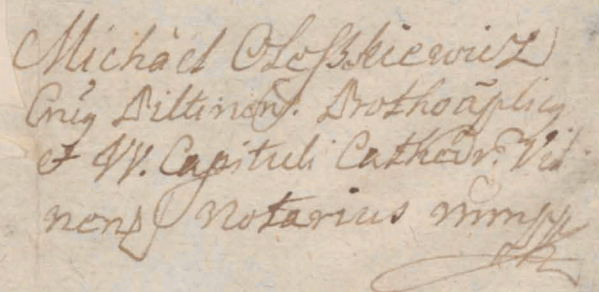 Michäel Oleszkiewicz
Cnûs Piltinens. Prothonâplicus
et VV. Capituli Cathedr: Vil
nens Notarius mmpp